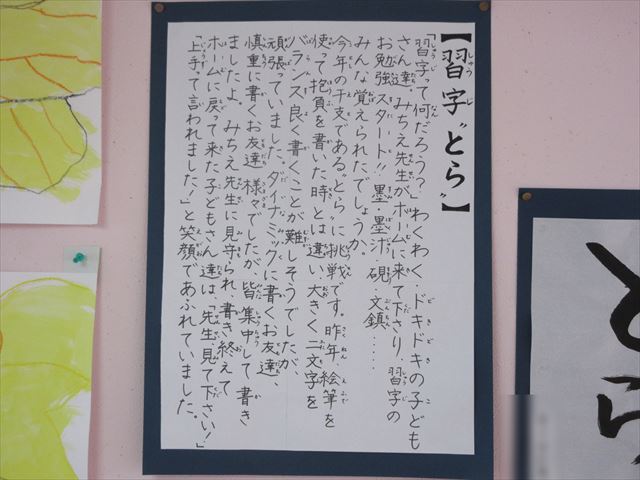 【習字"とら"】
「習字って何だろう?」わくわく・ドキドキの子ども
さん達。みちえ先生がホームに来て下さり、習字の
お勉強スタート!!墨・墨汁・硯・文鎮……
みんな覚えられたでしょうか。
今年の干支である"とら"に挑戦です。昨年、絵筆を
使って抱負を書いた時とは違い、大きく二文字を
バランス良く書くことが難しそうでしたが、
頑張っていました。ダイナミックに書くお友達、
慎重に書くお友達様々でしたが、皆集中して書き
ましたよ。みちえ先生に見守られ、書き終えて
ホームに戻って来た子どもさん達は、「先生、見て下さい!」
「上手って言われました!」と笑顔であふれていました。
とら